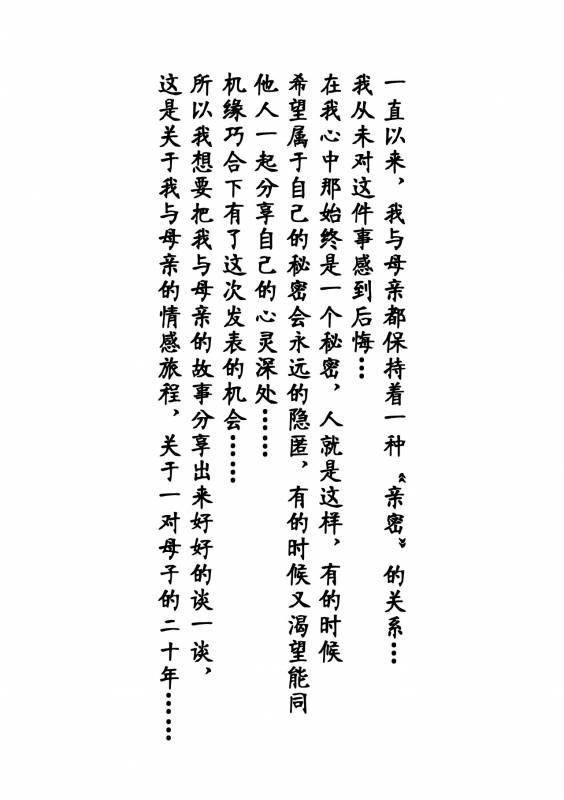 一直以来，我与母亲都保持着一种《亲密》的关系…
我从未对这件事感到后悔…
在我心中那始终是一个秘密，人就是这样，有的时候
希望属于自己的秘密会永远的隐匿，有的时候又渴望能同
他人一起分享自己的心灵深处……
机缘巧合下有了这次发表的机会……
所以我想要把我与母亲的故事分享出来好好的谈一谈，
这是关于我与母亲的情感旅程，关于一对母子的二十年……